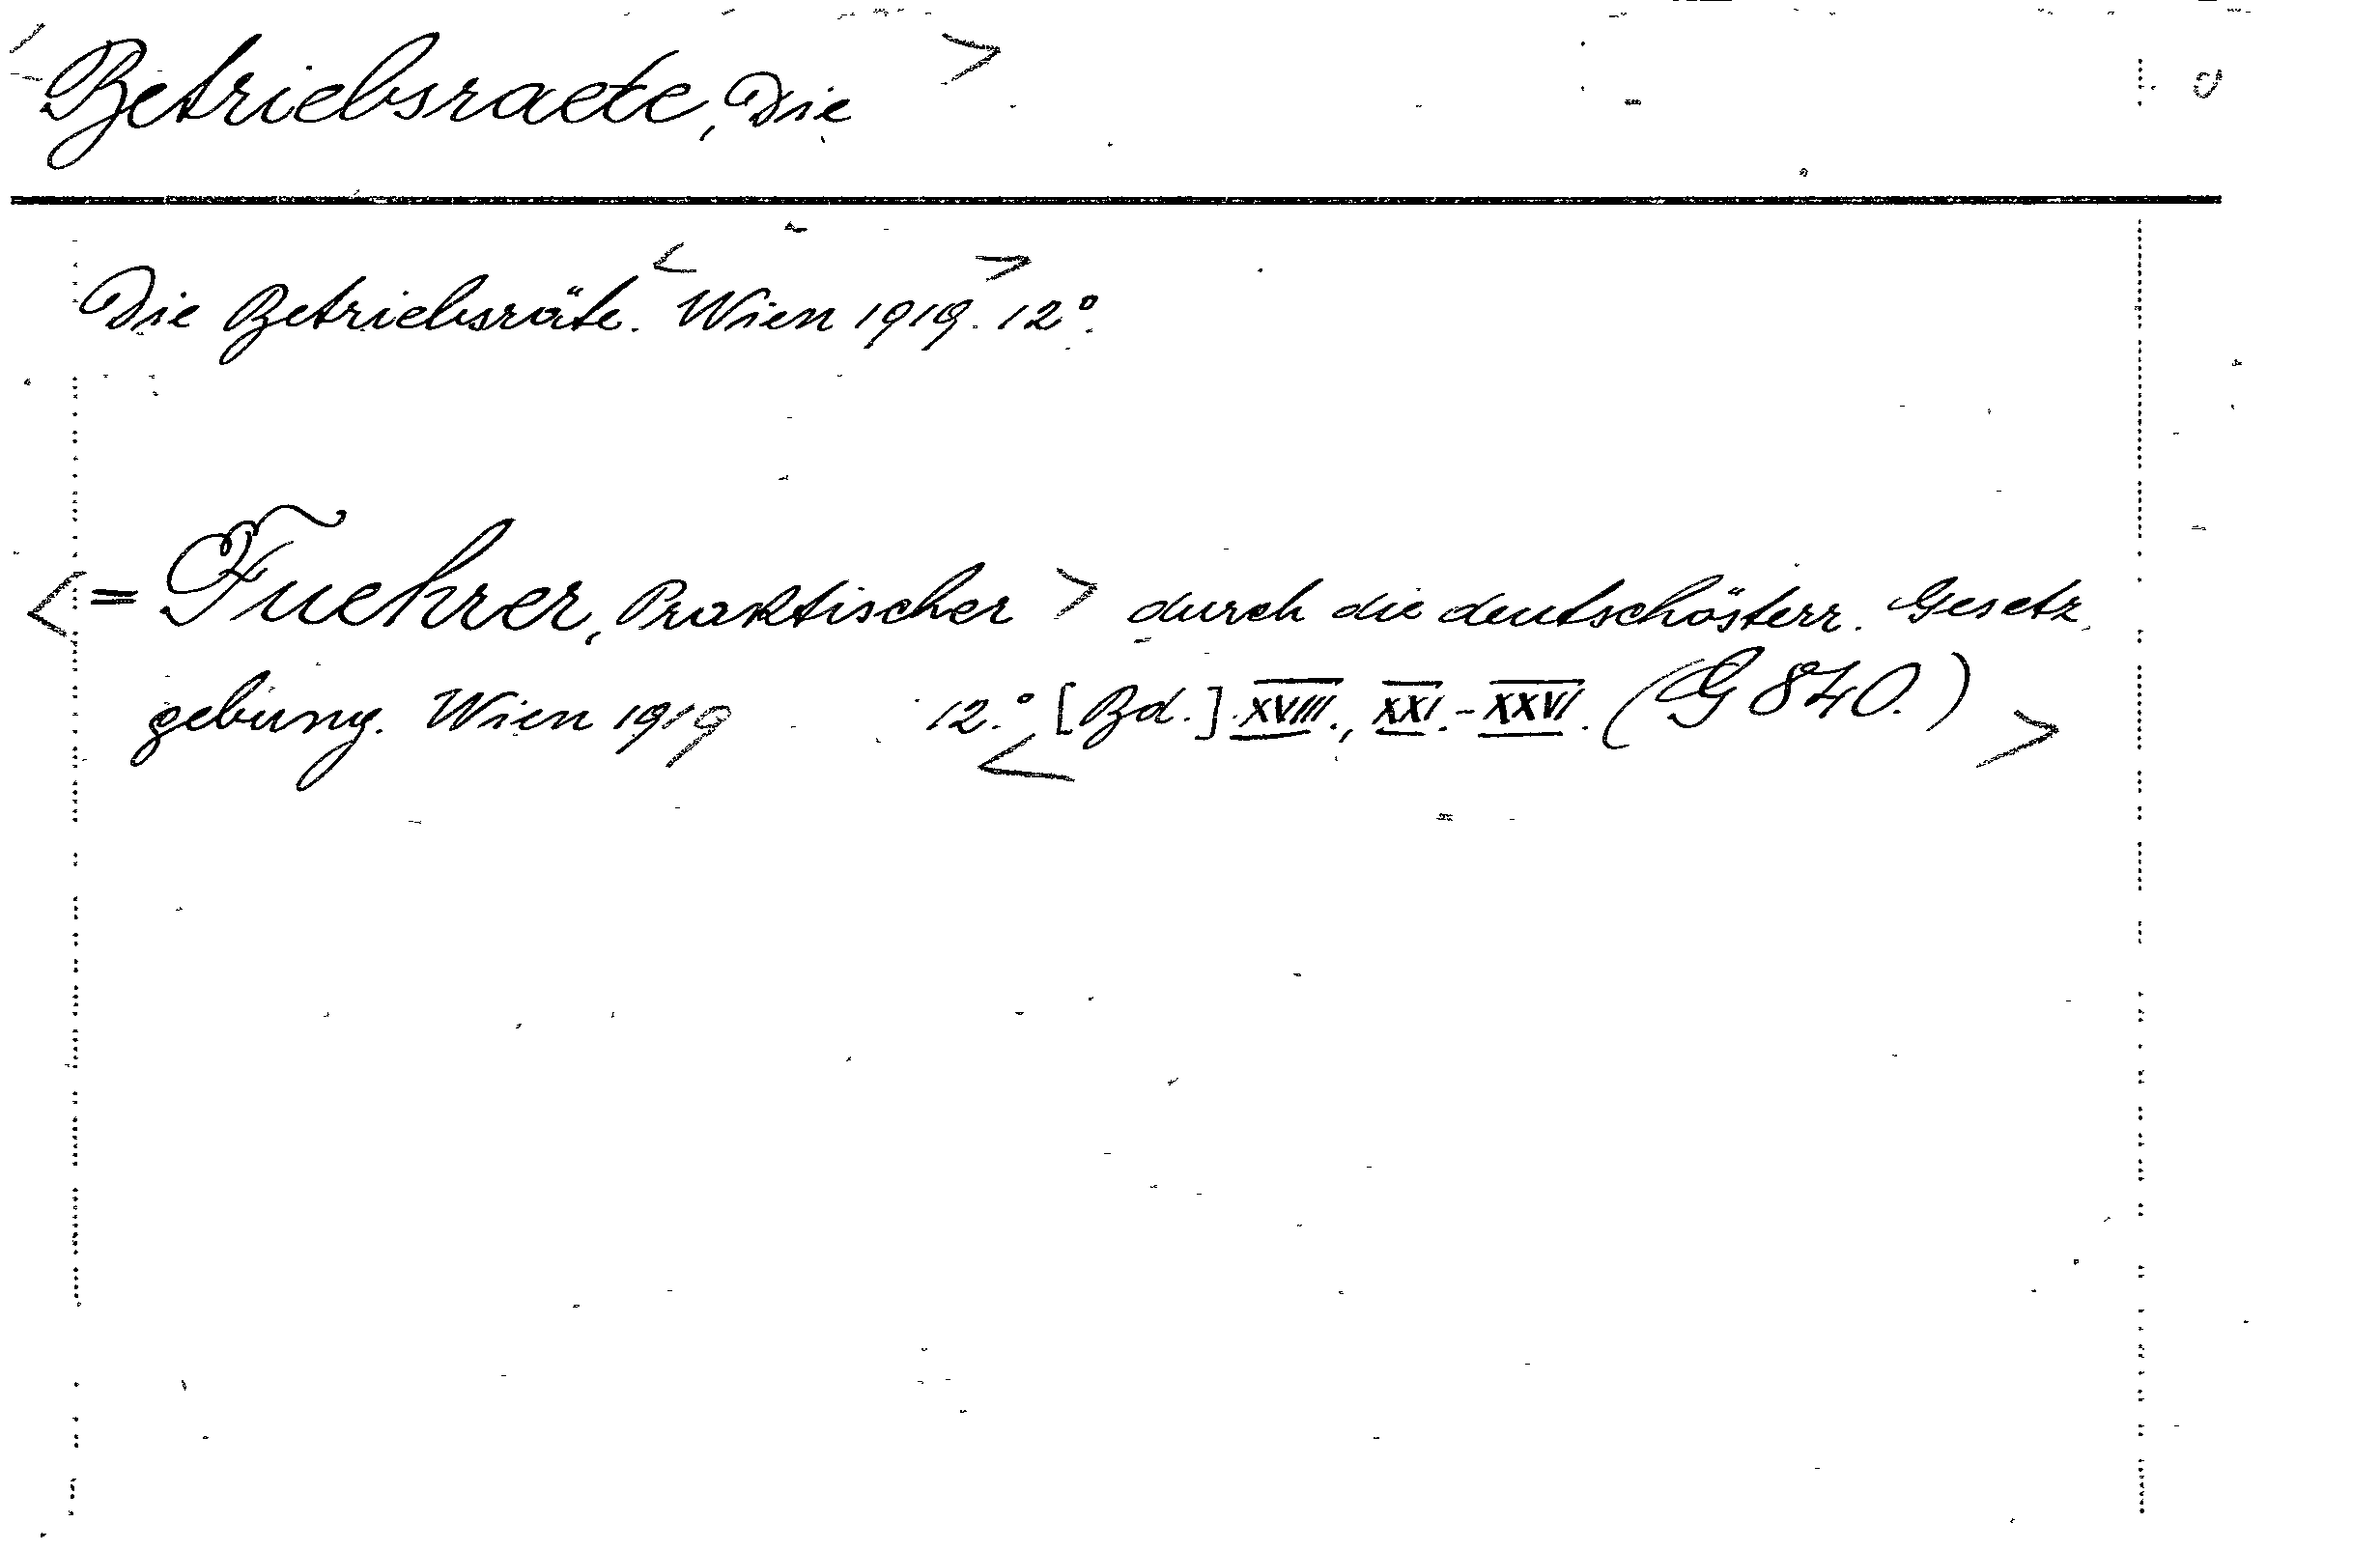 <Betriebsraete, Die>
Die Betriebsräte. <Wien 1919.> 12°.
<= Fuehrer, Praktischer> durch die deutschösterr. Gesetz-
gebung. Wien 1919 12.° <[Bd.] XVIII., XXI.-XXVI. (G 840.)>